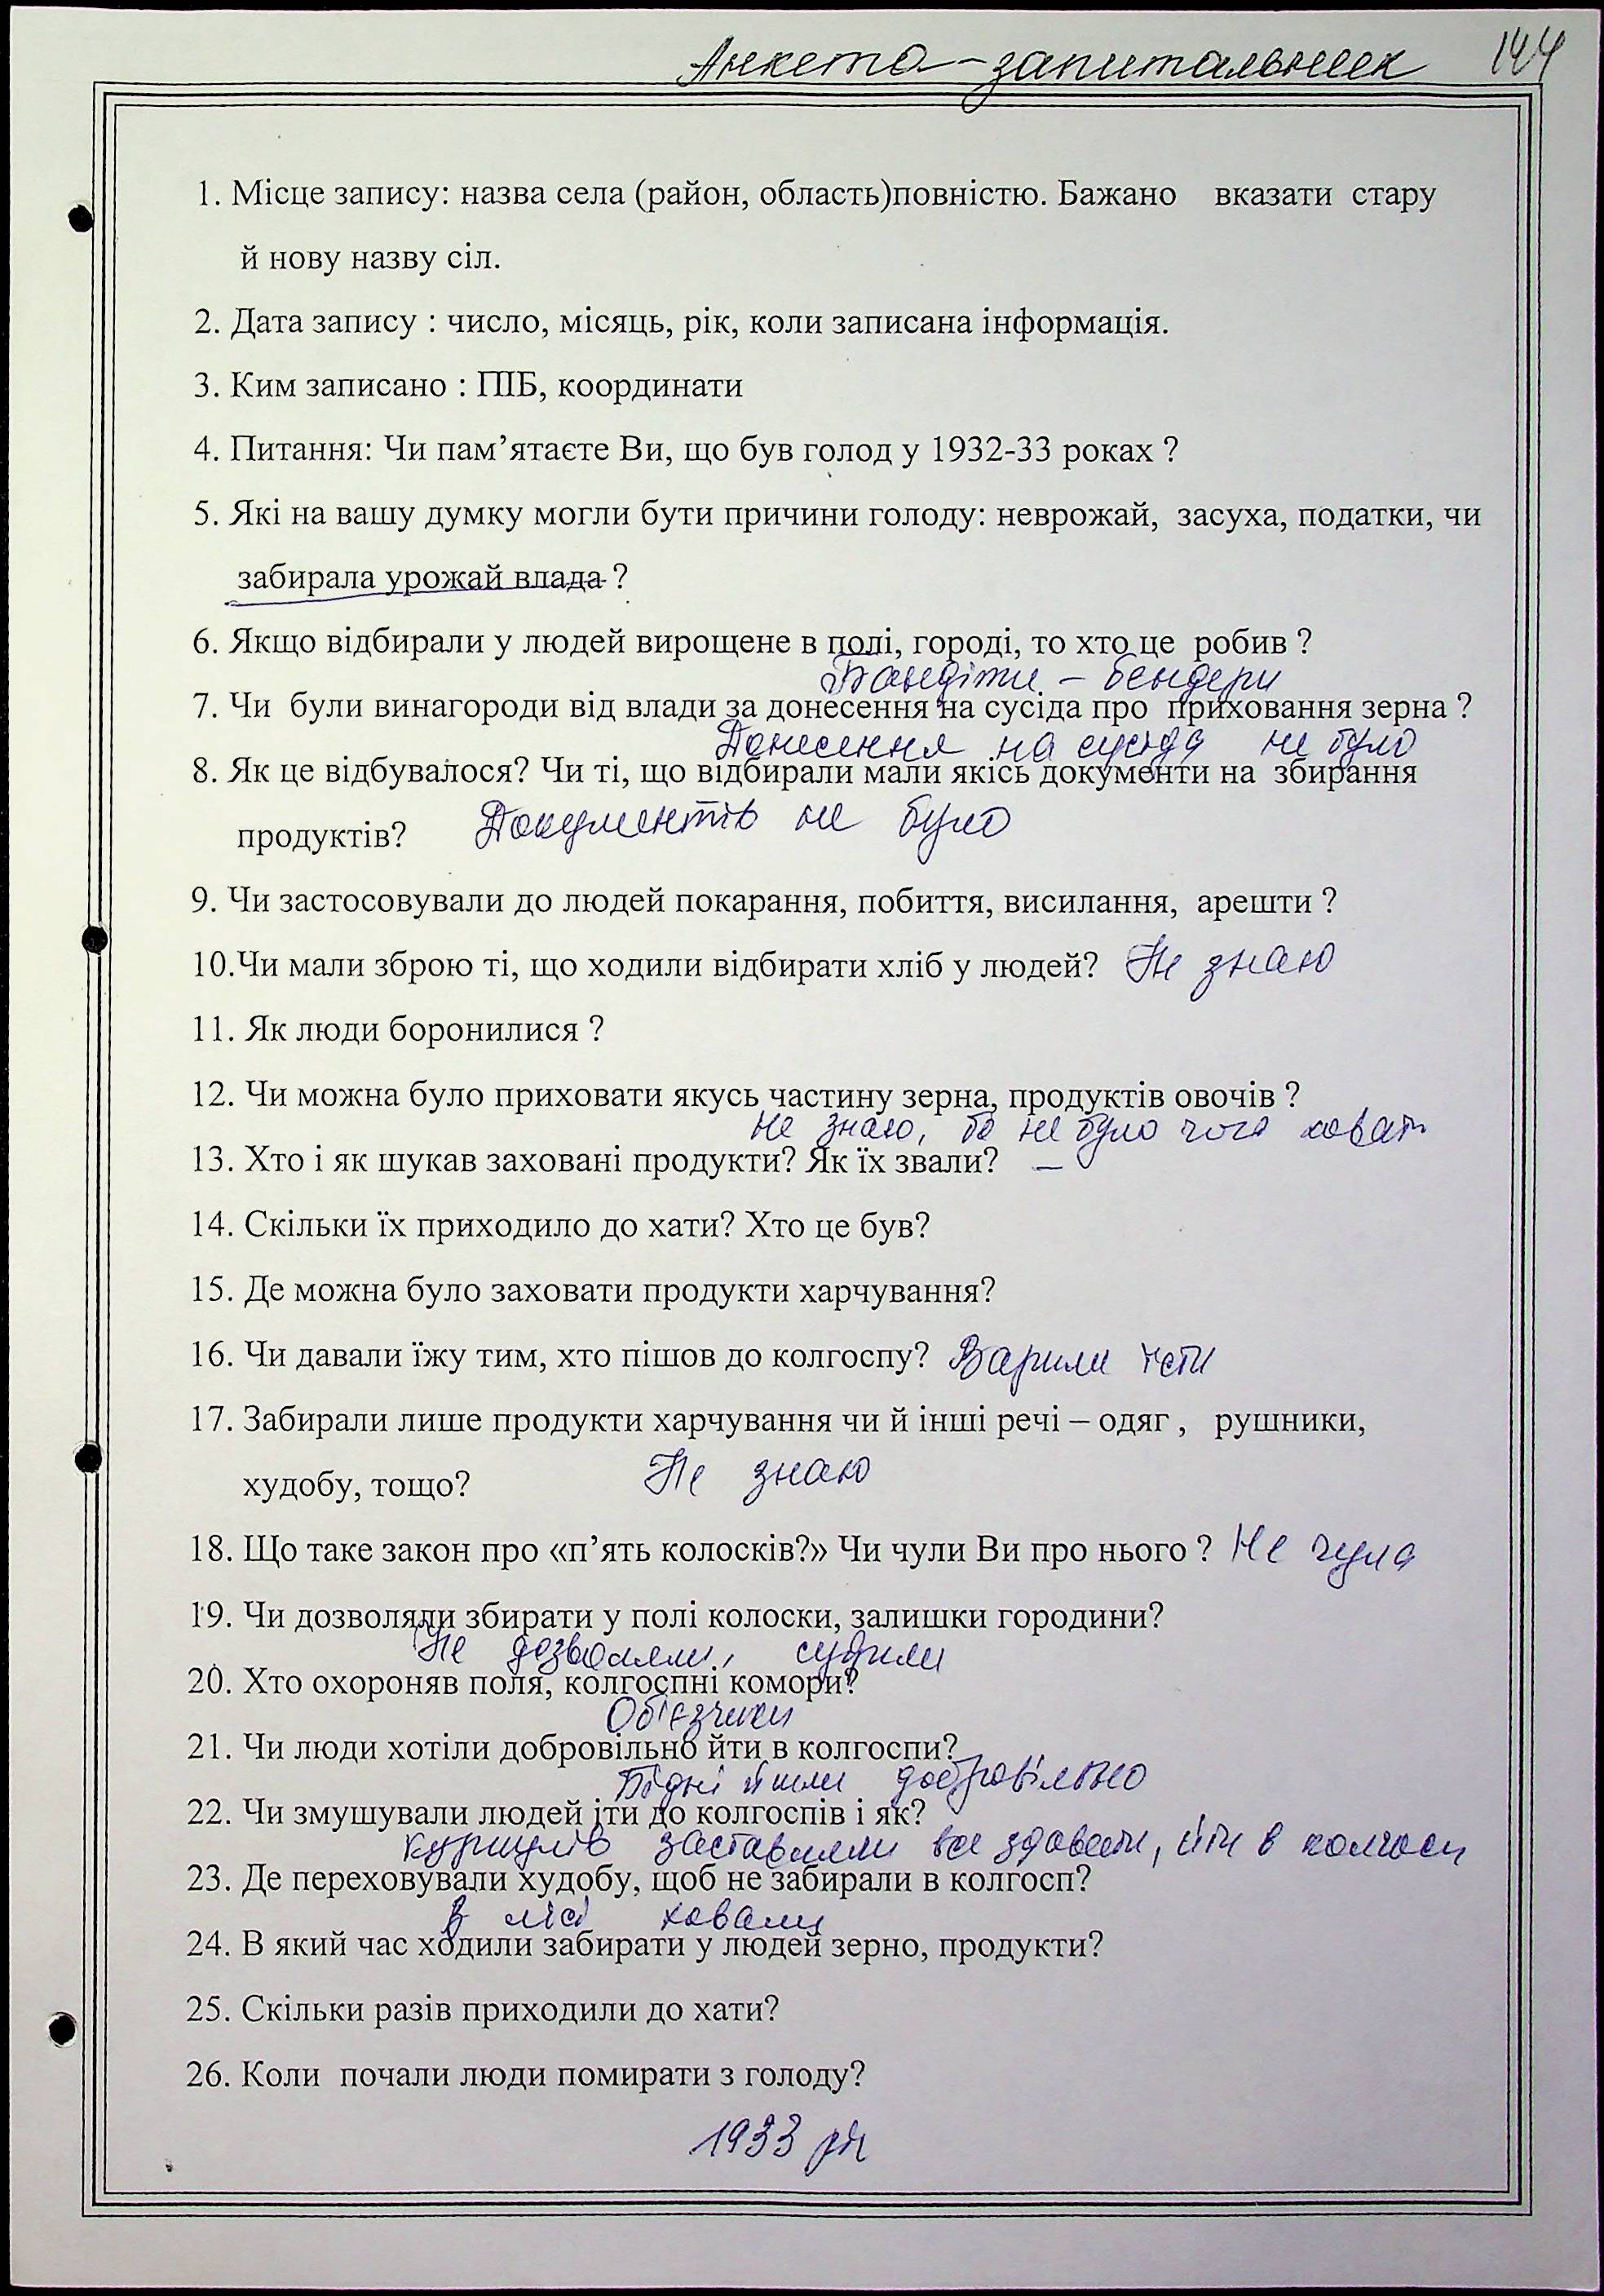 Анкета-запитальник 144
1. Місце запису: назва села (район, область)повністю. Бажано вказати стару
й нову назву сіл.
2. Дата запису : число, місяць, рік, коли записана інформація.
3. Ким записано : ПІБ, координати
4. Питання: Чи пам’ятаєте Ви, що був голод у 1932-33 роках ?
5. Які на вашу думку могли бути причини голоду: неврожай, засуха, податки, чи
забирала урожай влада ?
6. Якщо відбирали у людей вирощене в полі, городі, то хто це робив ?
Бандіти - бендери
7. Чи були винагороди від влади за донесення на сусіда про приховання зерна ?
Донесення на сусіда не було
8. Як це відбувалося? Чи ті, що відбирали мали якісь документи на збирання
продуктів? Документів не було
9. Чи застосовували до людей покарання, побиття, висилання, арешти ?
10.Чи мали зброю ті, що ходили відбирати хліб у людей? Не знаю
11. Як люди боронилися ?
12. Чи можна було приховати якусь частину зерна, продуктів овочів ?
Не знаю, бо не було чого ховать
13. Хто і як шукав заховані продукти? Як їх звали? –
14. Скільки їх приходило до хати? Хто це був?
15. Де можна було заховати продукти харчування?
16. Чи давали їжу тим, хто пішов до колгоспу? Варили їсти
17. Забирали лише продукти харчування чи й інші речі – одяг , рушники,
худобу, тощо? Не знаю
18. Що таке закон про «п’ять колосків?» Чи чули Ви про нього ? Не чула
19. Чи дозволяли збирати у полі колоски, залишки городини?
Не дозволяли, судили
20. Хто охороняв поля, колгоспні комори?
Об'єзчики
21. Чи люди хотіли добровільно йти в колгоспи?
Бідні йшли добровільно
22. Чи змушували людей іти до колгоспів і як?
куркулів заставляли все здавати, йти в колгосп
23. Де переховували худобу, щоб не забирали в колгосп?
В лісі ховали
24. В який час ходили забирати у людей зерно, продукти?
25. Скільки разів приходили до хати?
26. Коли почали люди помирати з голоду?
1933 рік